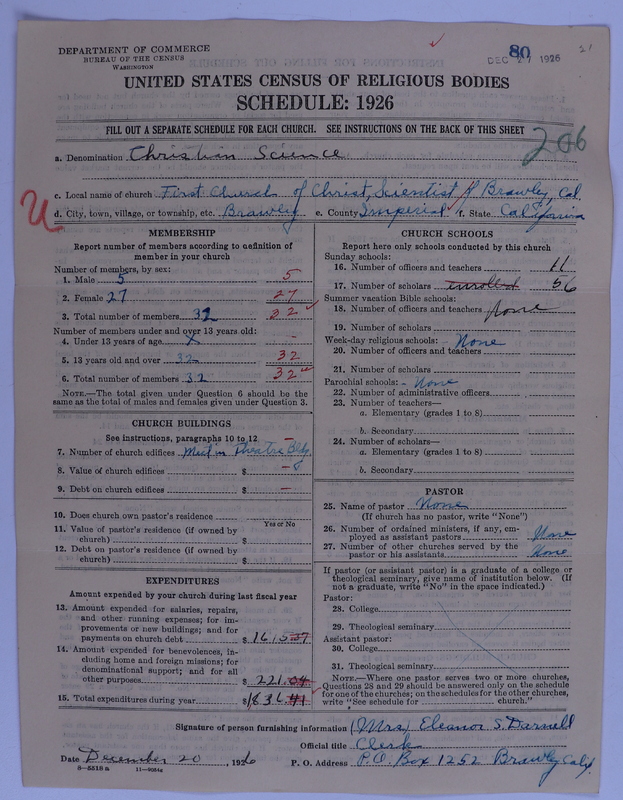 DEPARTMENT OF COMMERCE
BUREAU OF THE CENSUS
WASHINGTON
80
DEC 27 1926
UNITED STATES CENSUS OF RELIGIOUS BODIES
SCHEDULE: 1926
FILL OUT A SEPARATE SCHEDULE FOR EACH CHURCH. SEE INSTRUCTIONS ON THE BACK OF THIS SHEET
206
a. Denomination Christian Science
c. Local name of church First Church of Christ, Scientist of Brawley, Cal.
d. City, town, village, or township, etc. Brawley e. County Imperial f. State California
MEMBERSHIP
Report number of members according to definition of
member in your church
Number of members, by sex:
1. Male 5 5
2. Female 27 27
3. Total number of members 32 32
Number of members under and over 13 years old:
4. Under 13 years of age X -
5. 13 years old and over 32 32
6. Total number of members 32 32
NOTE.—The total given under Question 6 should be the
same as the total of males and females given under Question 3.
CHURCH BUILDINGS
See instructions, paragraphs 10 to 12
7. Number of church edifices Meet in Theatre Bldg.
8. Value of church edifices $
9. Debt on church edifices $ -
10. Does church own pastor's residence
Yes or No
11. Value of pastor's residence (if owned by
church) $
12. Debt on pastor's residence (if owned by
church) $
EXPENDITURES
Amount expended by your church during last fiscal year
13. Amount expended for salaries, repairs,
and other running expenses; for im-
provements or new buildings; and for
payments on church debt $ 1615.37
14. Amount expended for benevolences, in-
cluding home and foreign missions; for
denominational support; and for all
other purposes $ 221.04
15. Total expenditures during year $ 1836.41
CHURCH SCHOOLS
Report here only schools conducted by this church
Sunday schools:
16. Number of officers and teachers 11
17. Number of scholars enrolled 56
Summer vacation Bible schools:
18. Number of officers and teachers None
19. Number of scholars
Week-day religious schools: - None
20. Number of officers and teachers
21. Number of scholars
Parochial schools: - None
22. Number of administrative officers
23. Number of teachers—
a. Elementary (grades 1 to 8)
b. Secondary
24. Number of scholars—
a. Elementary (grades 1 to 8)
b. Secondary
PASTOR
25. Name of pastor None
(If church has no pastor, write "None")
26. Number of ordained ministers, if any, em-
ployed as assistant pastors None
27. Number of other churches served by the
pastor or his assistants None
If pastor (or assistant pastor) is a graduate of a college or
theological seminary, give name of institution below. (If
not a graduate, write "No" in the space indicated.)
Pastor:
28. College
29. Theological seminary
Assistant pastor:
30. College
31. Theological seminary
NOTE.—Where one pastor serves two or more churches,
Questions 28 and 29 should be answered only on the schedule
for one of the churches; on the schedules for the other churches,
write "See schedule for church."
Signature of person furnishing information (Mrs) Eleanor S. Darnell
Official title Clerk
Date December 20, 1926 P. O. Address P.O. Box 1252 Brawley Calif
8—5518 a 11—9064a